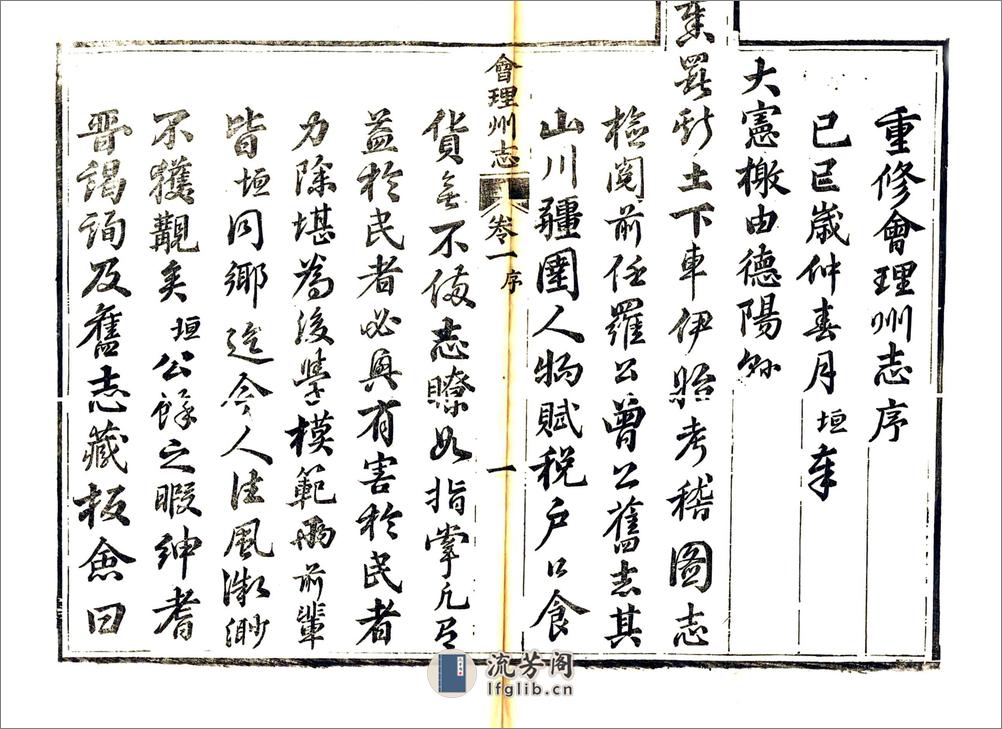 重修會理州志序
己巳歲仲春月垣奉
大憲檄由德陽
莅新土下車伊始考稽圖志
檢閱前任羅公曾公舊志其
山川疆圉人物賦稅户口食
會理州志 卷一序 一
貨無不備悉瞭如指掌凡有
益於民者必興有害於民者
力除堪為後學模範兩前輩
皆垣同鄉迄今人往風微渺
不獲覯矣垣公餘之暇紳耆
晋謁詢及舊志藏板僉曰
流芳阁
lfglib.cn